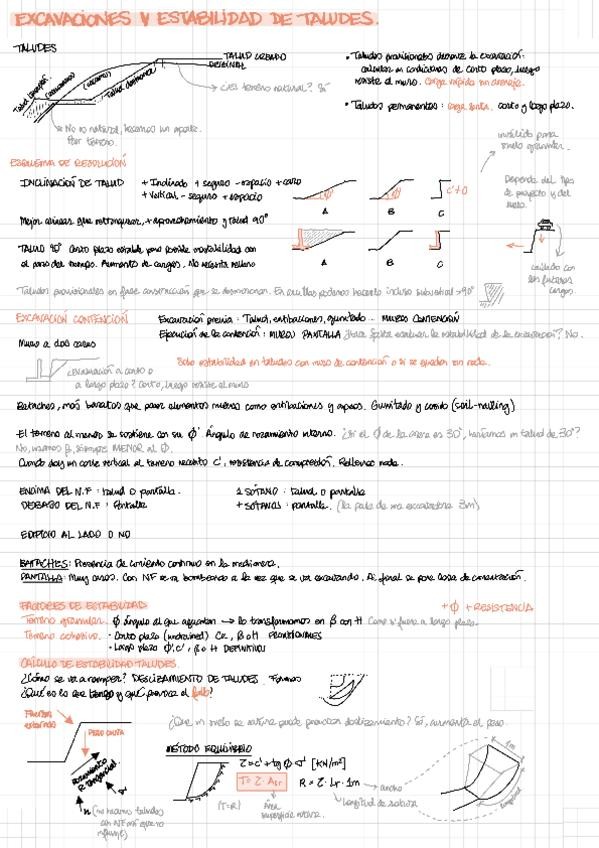 EXCAVACIONES Y ESTABILIDAD DE TALUDES.
TALUDES
TALUD URBANO
ORIGINAL
Talud
(vaciado)
Talud desmonte
¿es terreno natural? Sí
No es natural, hacemos un aporte
Por tercero.
• Taludes provisionales durante la excavación:
calcular en condiciones de corto plazo, luego
resiste el muro. Carga rápida sin drenaje.
• Taludes permanentes: carga lenta. corto y largo plazo.
ESQUEMA DE RESOLUCIÓN
INCLINACIÓN DE TALUD
+ Inclinado + seguro - espacio + caro
+ Vertical - seguro + espacio
A B C
c'≠0
inválido para
suelo granular.
Depende del tipo
de proyecto y del
suelo.
Mejor alinear que retranquear, + aprovechamiento y talud 90°
TALUD 90° Corto plazo estable pero posible inestabilidad con
el paso del tiempo. Aumento de cargas. No necesita relleno
A B C
cuidado con
las futuras
cargas.
Taludes provisionales en fase construcción que se desmoronan. En arcillas podemos hacerlo incluso subvertical >90°
EXCAVACIÓN CONTENCIÓN
Excavación previa: Talud, entibaciones, gunitado... MUROS CONTENCIÓN
Ejecución de la contención: MUROS PANTALLA ¿Hace falta evaluar la estabilidad de la excavación? No.
Muro a dos caras
¿Evaluación a corto o
a largo plazo? Corto, luego resiste el muro
Solo estabilidad en taludes con muro de contención o si se quedan sin nada.
Bataches, más baratos que poner elementos nuevos como entibaciones y apeos. Gunitado y cosido (soil-nailing)
El terreno al menos se sostiene con su Ø' Ángulo de rozamiento interno. ¿Si el Ø de la arena es 30°, haríamos un talud de 30°?
No, usamos β, siempre MENOR al Ø.
Cuando doy un corte vertical al terreno necesito c', resistencia de compresión. Rellenos nada.
ENCIMA DEL N.F: talud o pantalla.
DEBAJO DEL N.F: Pantalla
1 SÓTANO: talud o pantalla
+ SÓTANOS: pantalla. (la pala de una excavadora 3m)
EDIFICIO AL LADO O NO
BATACHES: Presencia de cimiento continuo en la medianera.
PANTALLA: Muy caros. Con NF se va bombeando a la vez que se va excavando. Al final se pone losa de cimentación.
FACTORES DE ESTABILIDAD
+Ø +RESISTENCIA
Terreno granular. Ø ángulo al que aguantan → lo transformamos en β con H Como si fuera a largo plazo.
Terreno cohesivo. • Corto plazo (undrained) Cu, β o H PROVISIONALES
• Largo plazo Ø', c', β o H DEFINITIVOS
CÁLCULO DE ESTABILIDAD TALUDES.
¿Cómo se va a romper? DESLIZAMIENTO DE TALUDES. Formas
¿Qué es lo que tengo y qué provoca el fallo?
Fuerza
PESO CAUSA
Rozamiento
R tangencial
N
(no hacemos taludes
con NF así que no
influye)
¿Que un suelo se sature puede provocar deslizamiento? Sí, aumenta el peso.
MÉTODO EQUILIBRIO
τ = c' + tg Ø σ' [kN/m²]
T = τ · A
(T=R)
Área
superficie rotura.
R = τ · Lr · 1m
ancho
longitud de rotura
1m
Longitud